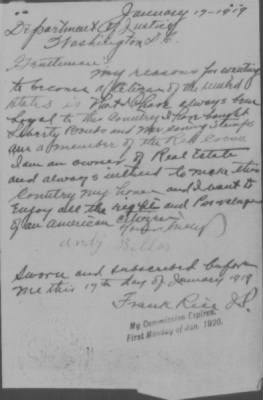 January 17-1919
Department of Justice
Washington D.C.
Gentlemen:
My reasons for wanting
to become a Citizen of the United
States is that I have always been
Loyal to this Country I have bought
Liberty Bonds and War Saving Stamps
am a member of the Red Cross
I am an owner of Real Estate
and always intend to make this
Country my home and I want to
Enjoy all the rights and
of an American Citizen
Yours Truly
Sworn and subscribed before
me this 17th day of January 1919
Frank Rice J.P.
My Commission Expires
First Monday of Jan. 1920.